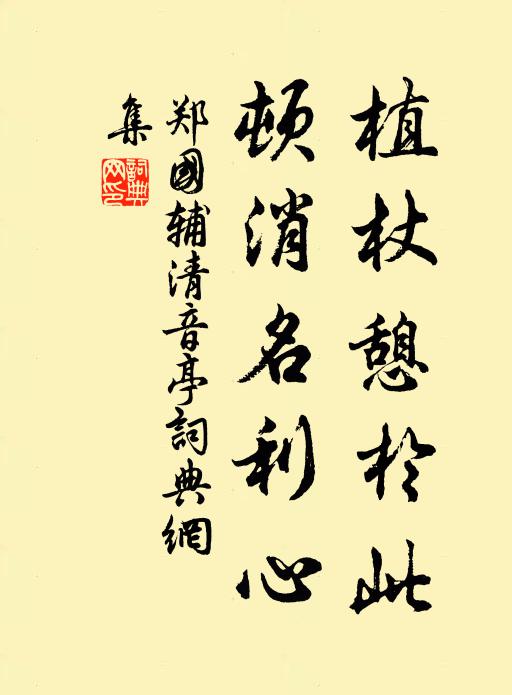 植杖憩於此
顿消名利心
郑國辅清音亭詞典網
集
詞典网印